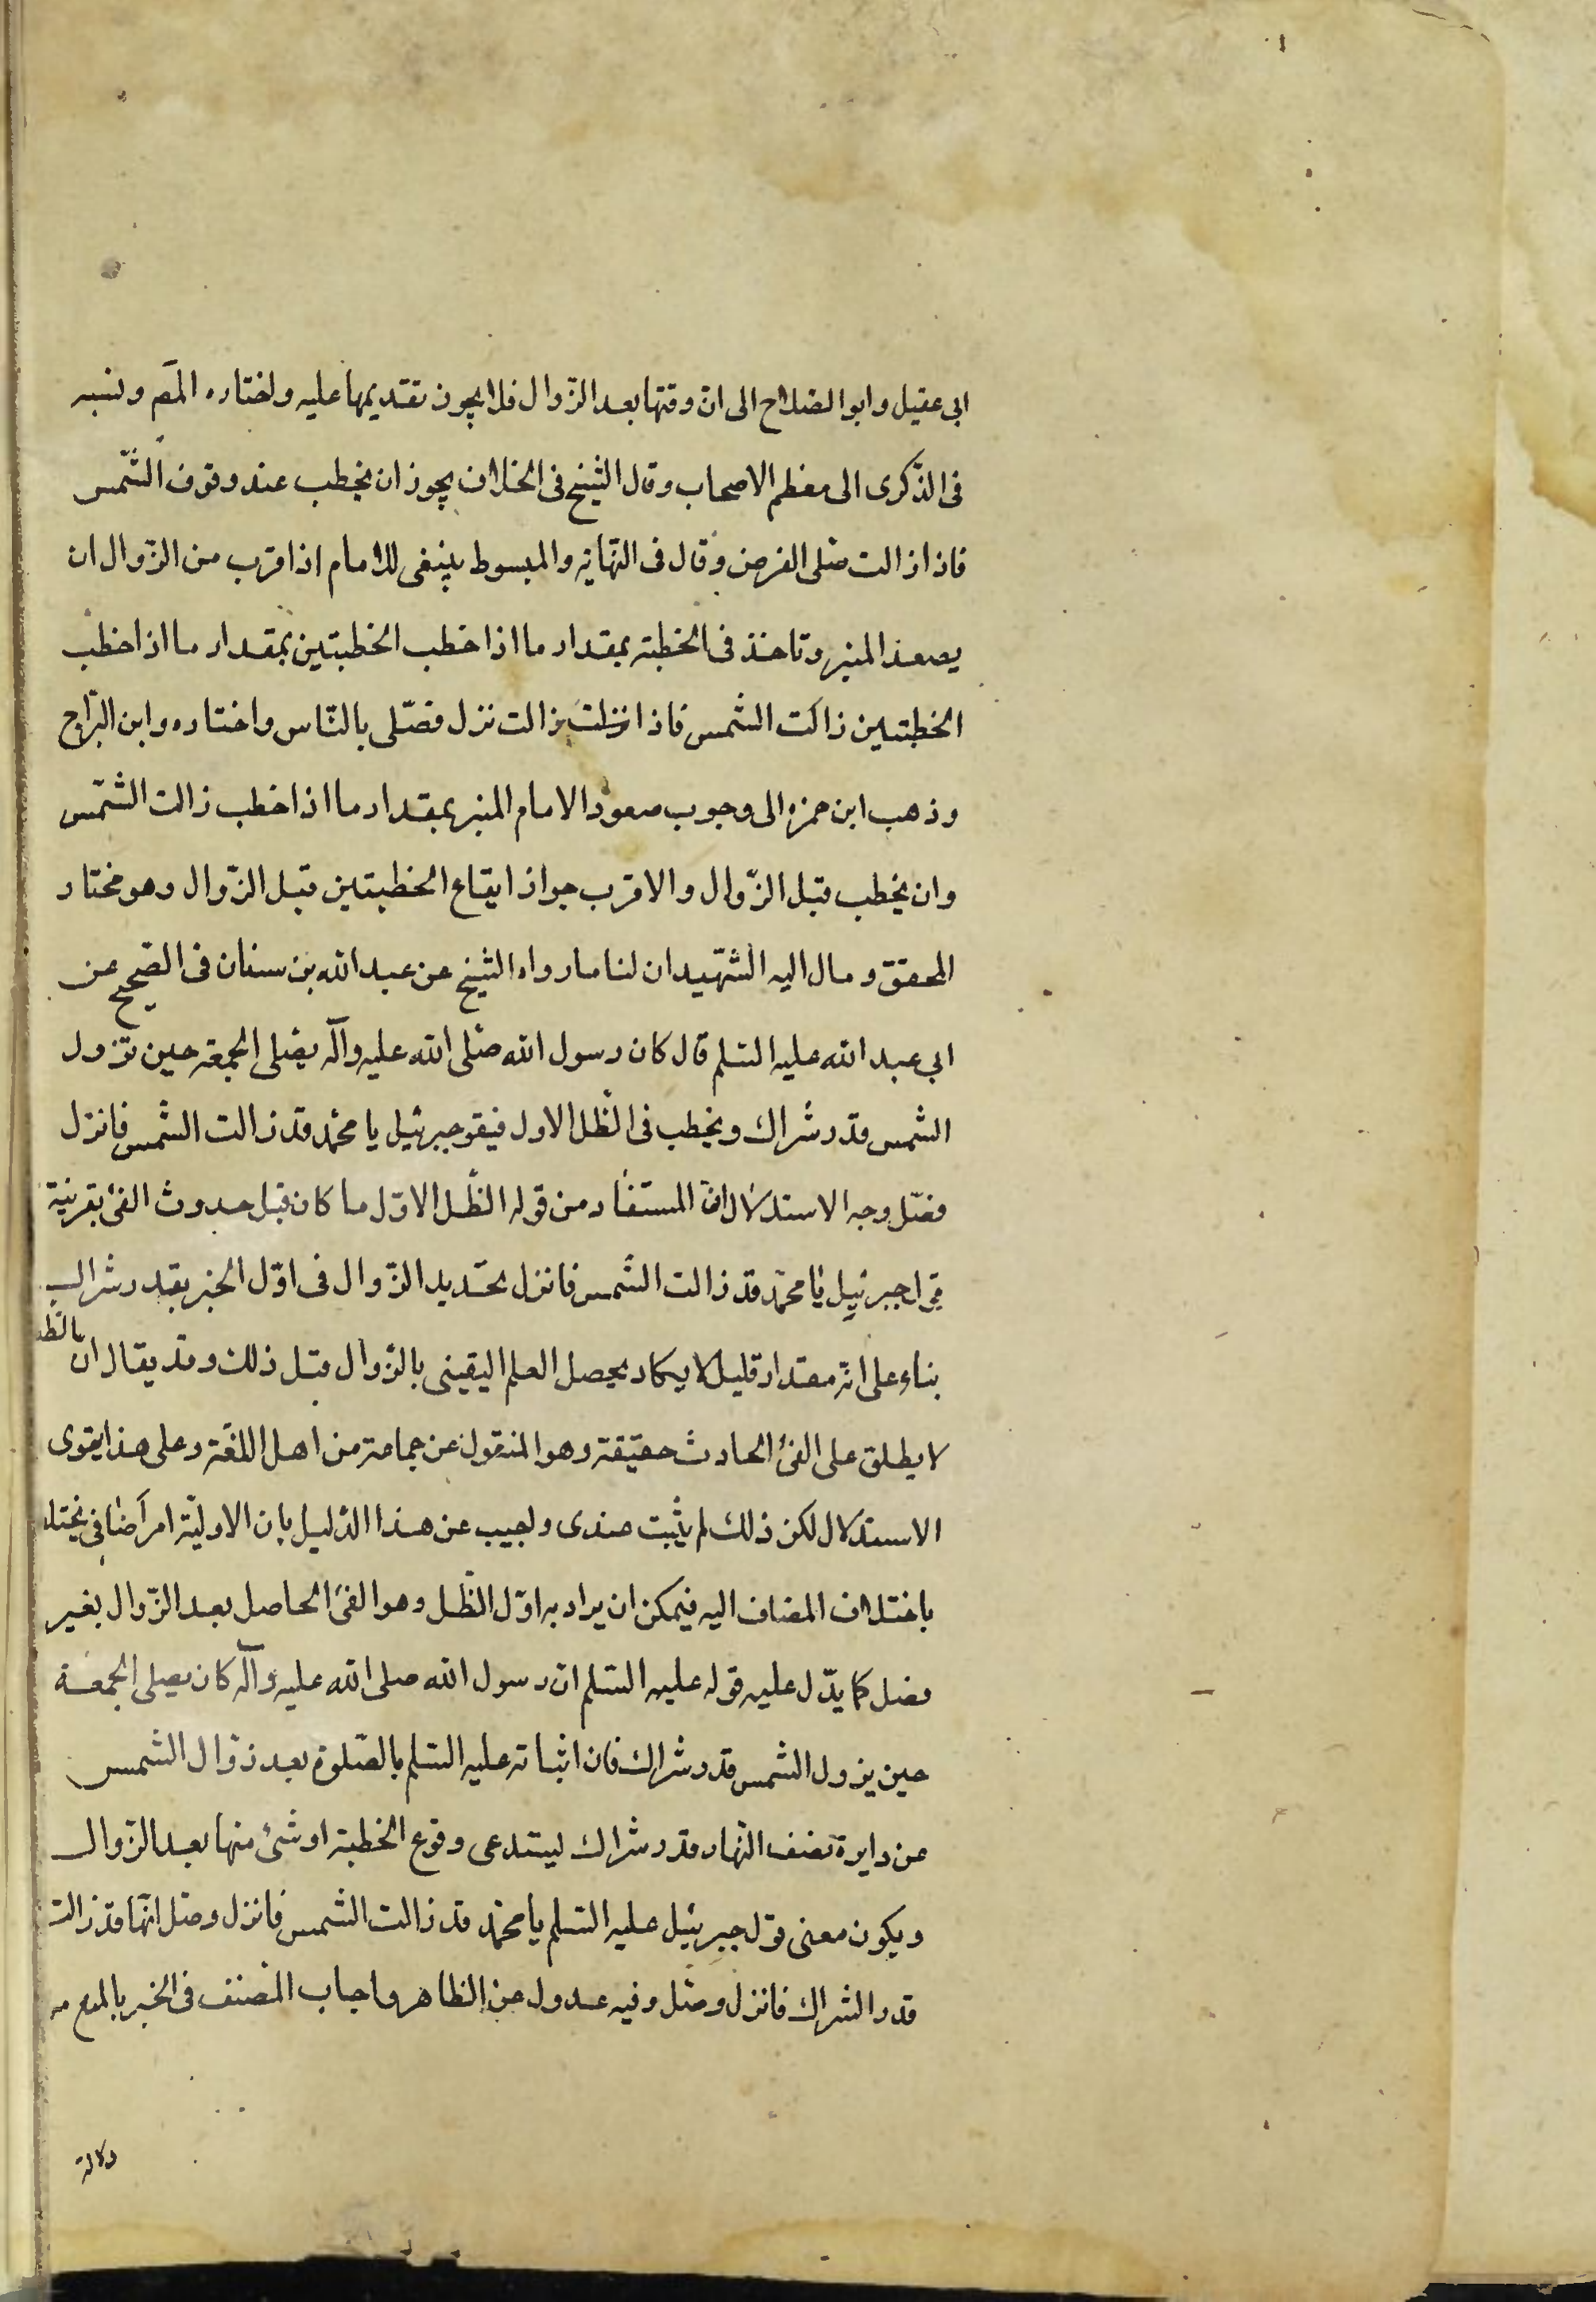 ابى عقيل وابوالصلاح الى ان وقتها بعد الزّوال فلا يجوز تقديمها عليه واختاره المصّ ونسبه
فى الذّكرى الى معظم الاصحاب وقال الشّيخ فى الخلاف يجوز ان يخطب عند وقوف الشّمس
فاذا زالت صلّى الفرض وقال فى النّهاية والمبسوط ينبغى للامام اذا قرب من الزّوال ان
يصعد المنبر وتاخذ فى الخطبة بمقدار ما اذا خطب الخطبتين بمقدار ما اذا خطب
الخطبتين زالت الشمس فاذا نزلت زالت نزل فصّلى بالنّاس واختاره وابن البّراج
وذهب ابن حمزه الى وجوب صعود الامام المنبر بمقدار ما اذا خطب زالت الشّمس
وان يخطب قبل الزّوال والاقرب جواز ايقاع الخطبتين قبل الزّوال وهو مختار
المحقق ومال اليه الشّهيدان لنا ما رواه الشّيخ عن عبد الله بن سنان فى الصّحيح عن
ابى عبد الله عليه السّلم قال كان رسول الله صلّى الله عليه وآله يصلّى الجمعة حين تزول
الشمس قدر شراك ويخطب فى الظّل الاول فيقو جبرئيل يا محمّد قد زالت الشّمس فانزل
فصّل وجه الاستدلال انّ المستفاد من قوله الظّل الاوّل ما كان قبل حدوث الفئ بقرينة
جبرئيل يا محمّد قد زالت الشّمس فانزل بحّديد الزّوال فى اوّل الخبر بقدر شراك
بناء على انّه مقدار قليل لا يكاد يحصل العلم اليقينى بالزّوال قبل ذلك وقد يقال انّ الظ
لا يطلق على الفئ الحادث حقيقة وهو المنقول عن جماعة من اهل اللغة وعلى هذا يقوى
الاستدلال لكن ذلك لم يثبت عندى واجيب عن هذا الدّليل بان الاوليّة امر اضافى يختلف
باختلاف المضاف اليه فيمكن ان يراد به اوّل الظّل وهو الفئ الحاصل بعد الزّوال بغير
فصل كما يدّل عليه قوله عليه السّلم ان رسول الله صلى الله عليه وآله كان يصلى الجمعة
حين يزول الشمس قدر شراك فان اثباته عليه السّلم بالصّلوة بعد زوال الشمس
عن دايرة نصف النّهار قدر شراك ليستدعى وقوع الخطبة او شئ منها بعد الزّوال
ويكون معنى قول جبرئيل عليه السّلم يا محمّد قد زالت الشمس فانزل وصّل انّها قد زالت
قدر الشراك فانزل وصّل وفيه عدول عن الظاهر واجاب المصنف فى الخبر بالمنع من
دلالة